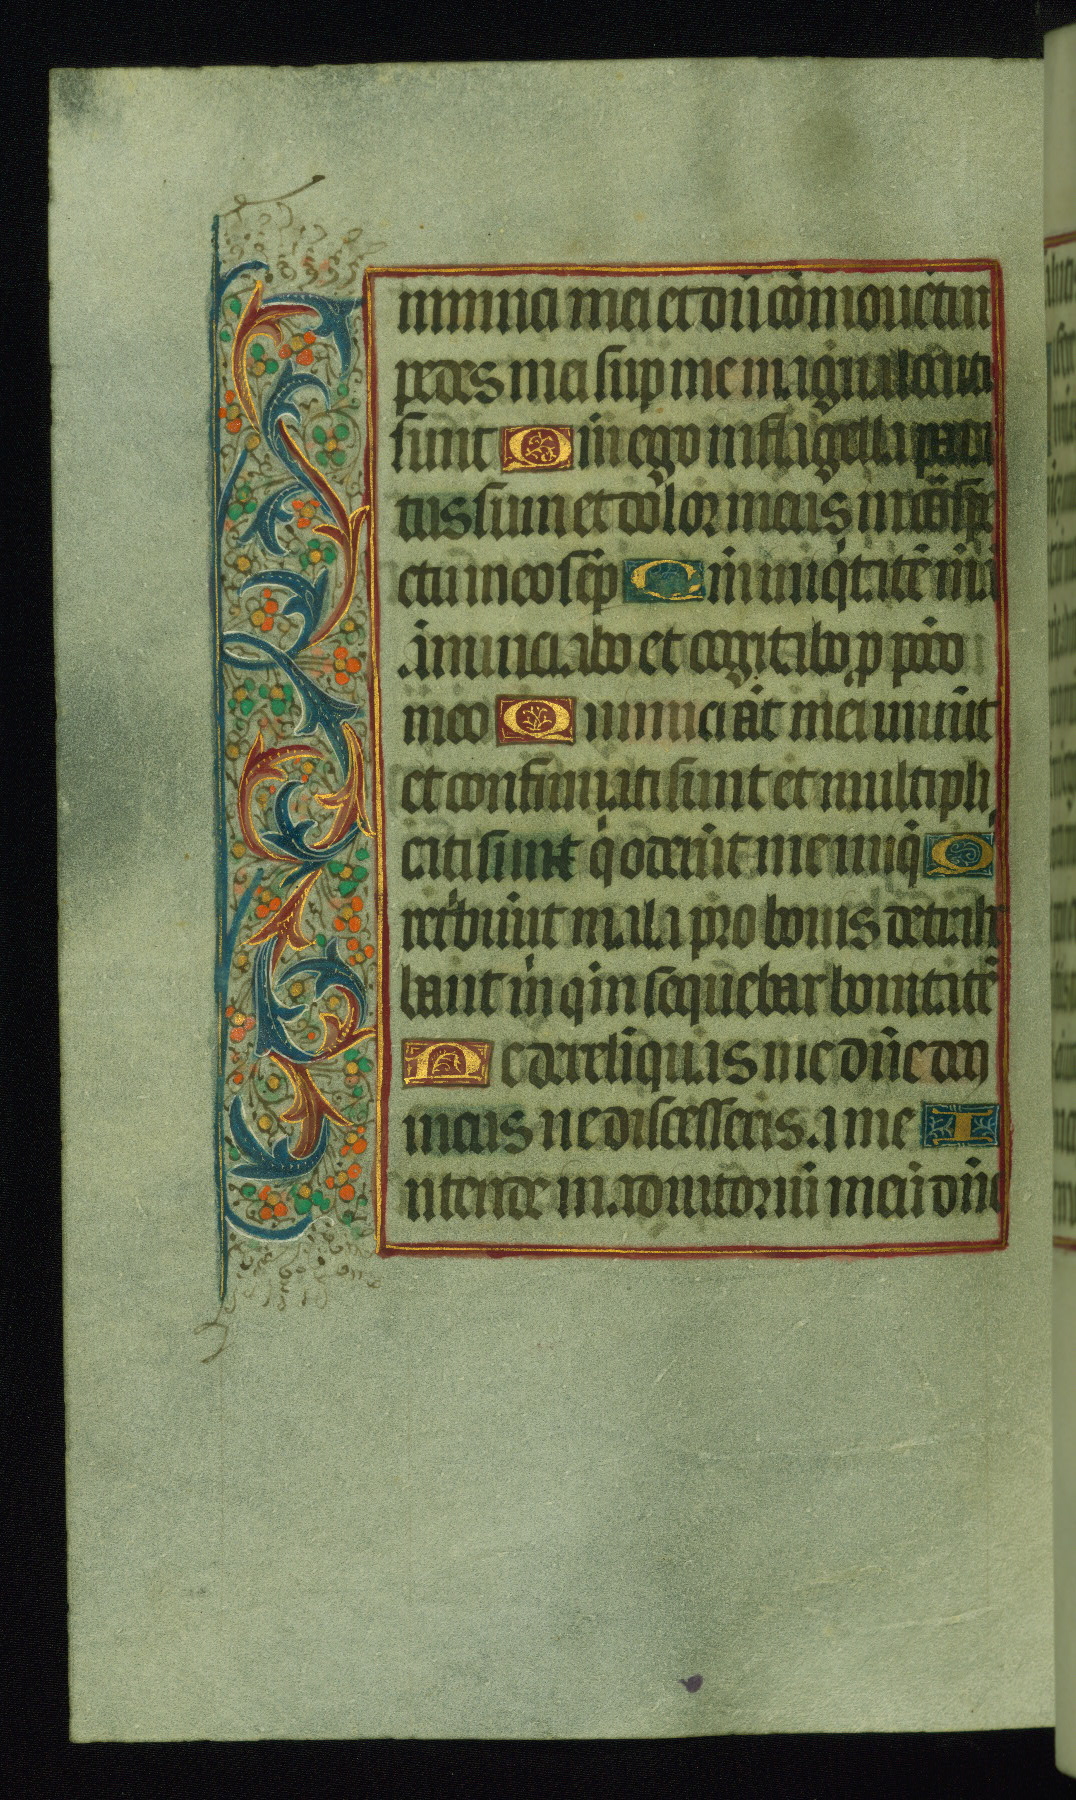 inimici mei et dū cōmouētur
pedes mei sup me magna locuti
sunt Qm̄ ego in flagella para
tus sum et dolor meus in cōspe
ctu meo sēp Qm̄ iniqͥtatē mēā
ānunciabo et cogitabo p pctō
meo Inimici āt mei uiuūt
et confirmati sunt et multipli
cati sunt qͥ oderūt me iniq̄ Q
retͥbuūt mala pro bonis detrahe
bant m̄ qm̄ sequebar bonitatē
Ne derelīquas me dn̄e deus
meus ne discesseris a me I
ntende in adiutoriū meū dn̄e